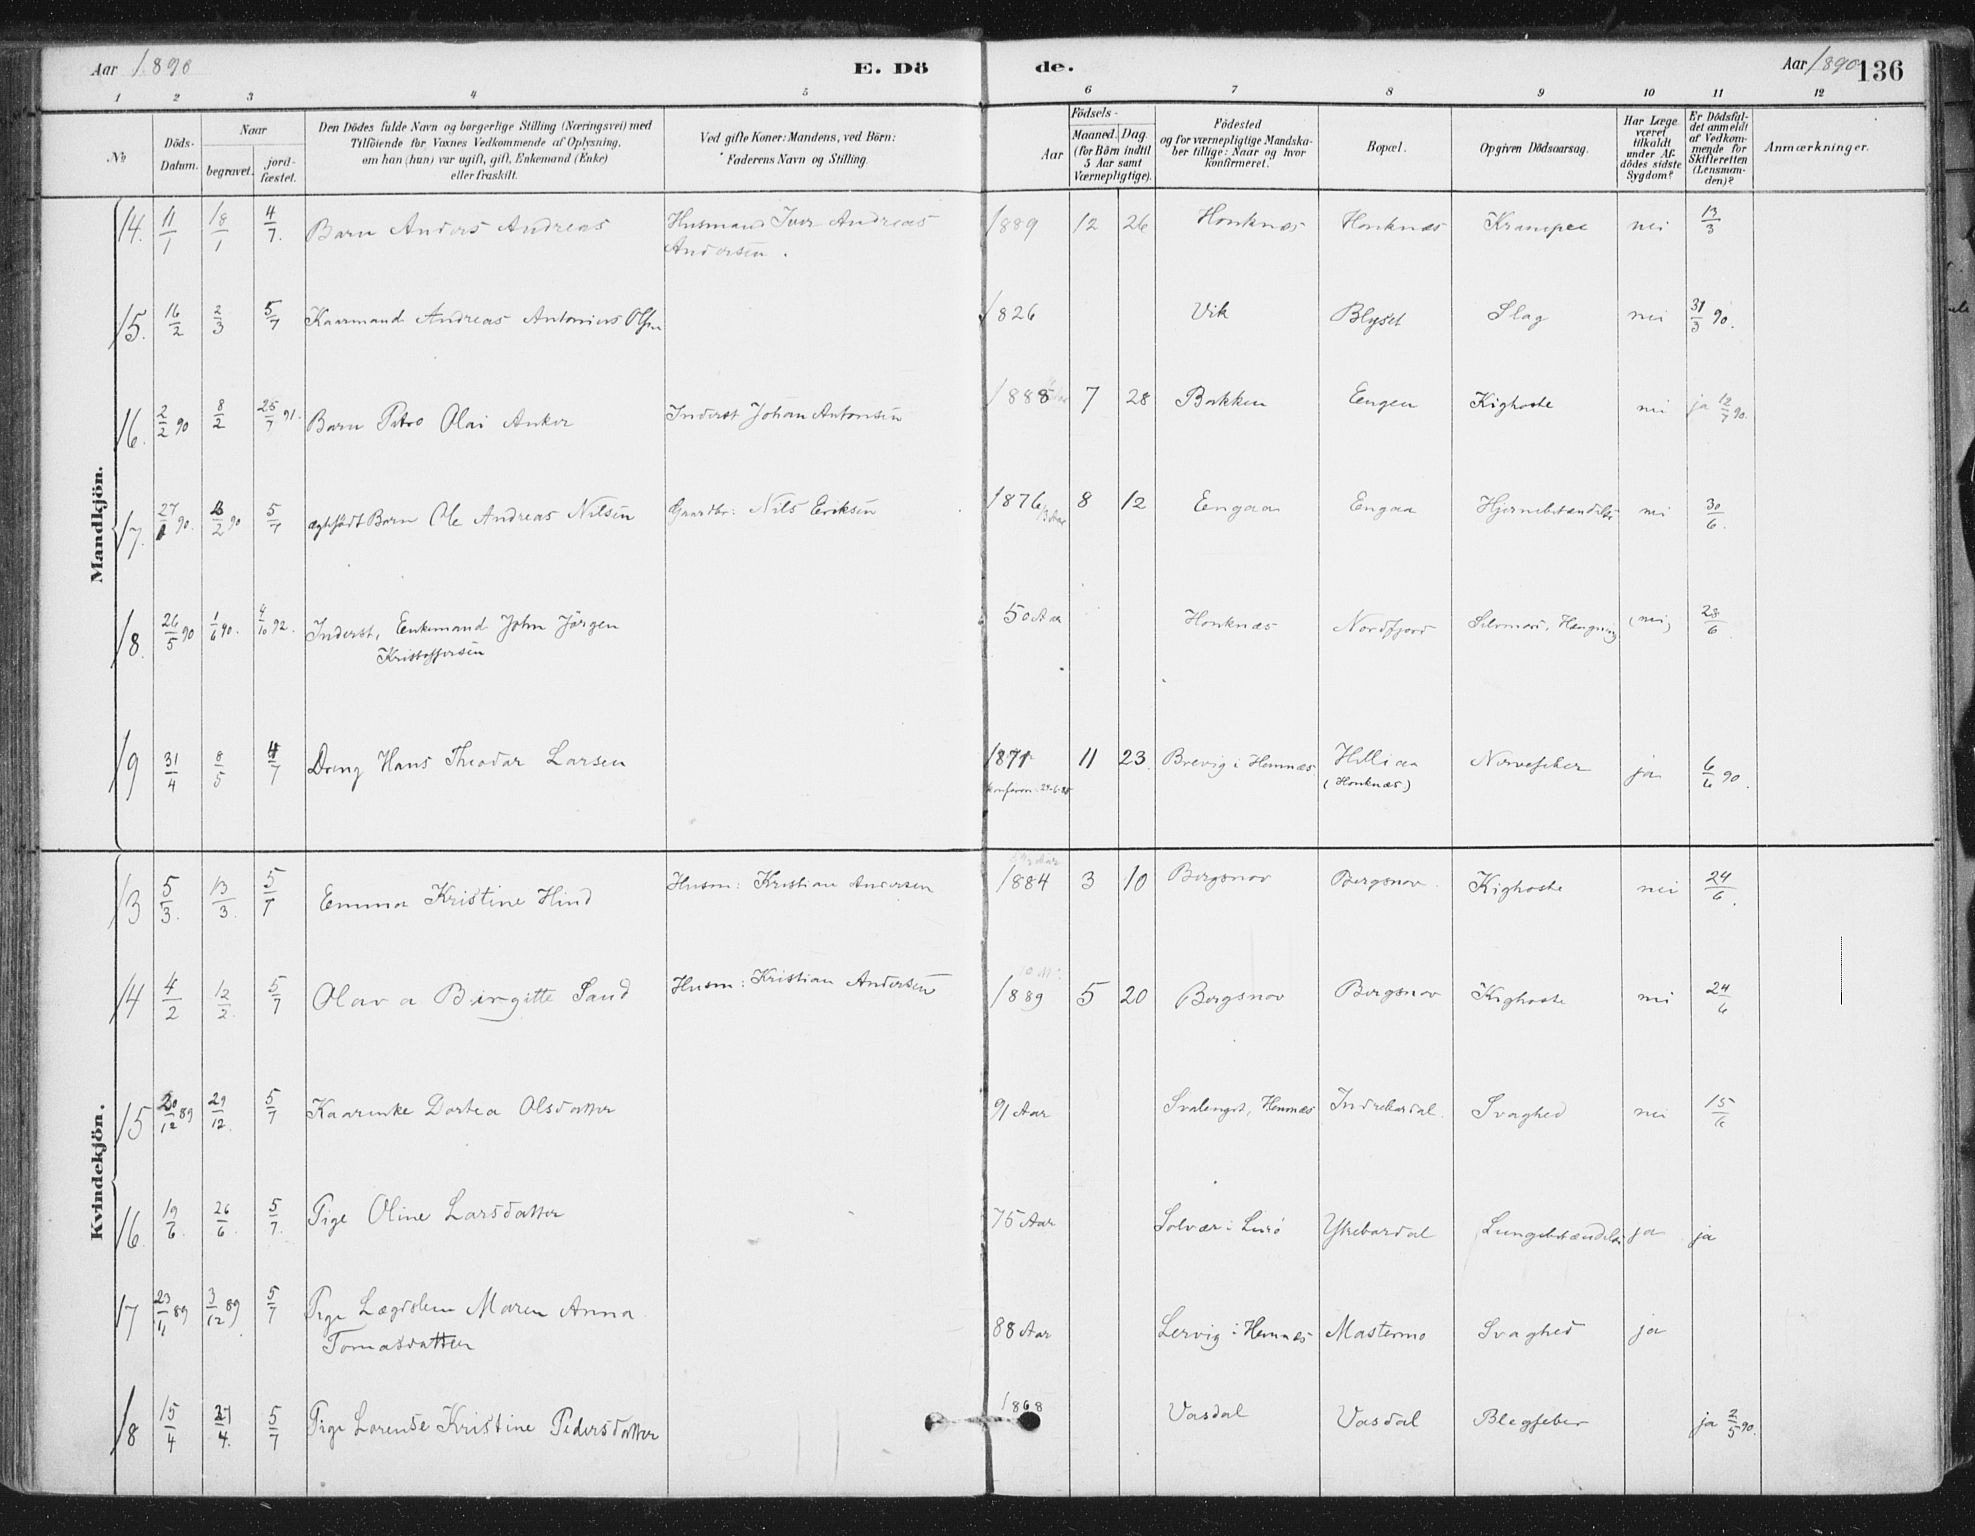 Aar 1890 E. Dö de. Aar 1890 136
1 2 3 4 5 6 7 8 9 10 11 12
№ Döds-Datum. Naar begravet. jord-fæstet. Den Dödes fulde Navn og borgerlige Stilling (Næringsvei) med Tilföiende for Voxnes Vedkommende af Oplysning, om han (hun) var ugift, gift, Enkemand (Enke) eller fraskilt. Ved gifte Koner: Mandens, ved Börn: Faderens Navn og Stilling. Födsels- Aar Maaned. Dag. (for Börn indtil 5 Aar samt Værnepligtige). Födested og for værnepligtige Mandskaber tillige: Naar og hvor konfirmeret. Bopæl. Opgiven Dödsaarsag. Har Læge været tilkaldt under Afdödes sidste Sygdom? Er Dödsfaldet anmeldt af Vedkommende for Skifteretten (Lensmanden)? Anmærkninger.
Mandkjön.
14. 11/1 18/1 4/7. Barn Anders Andreas Husmand Iver Andreas Andersen. 1889 12 26 Honknæs Honknæs Krampee nei 13/3
15. 16/2 2/3 5/7 Kaarmand Andreas Antonius Olsen 1826 Vik Blyset Slag nei 31/3 90.
16. 2/2 90 8/2 25/7 91. Barn Petro Olai Anker Inderst Johan Antonsen 1888 7 28 Bakken Eengen Kighoste nei ja 12/7 90.
17. 27/1 90. 3/2 90 5/7 ægtefödt Barn Ole Andreas Nilsen Gaardbr: Nils Eriksen 1876 13 Aar 8 12 Eengaa Engaa Hjernebetændelse nei 30/6.
18. 26/5 90 1/6 90. 4/10 92. Inderst, Enkemand John Jörgen Kristoffersen 50 Aar Honknæs Nordfjord Selvmord, Hængning (nei) 28/6
19 31/4 8/5 4/7 Dreng Hans Theodor Larsen 1871 11 23. Brevig i Hemnæs Helliaa (Honknæs) Nervefeber ja 6/6 90.
Kvindekjön.
13 5/3. 13/3. 5/7 Emma Kristine Hind Husm: Kristian Andersen 1884 3 10 Bergsnov Bergsnov. Kighoste nei 24/6.
14 4/2 12/2. 5/7 Olava Birgitte Sand Husm: Kristian Andersen 1889 5 20 Bergsnov Bergsnov Kighoste nei 24/6
15 20/12 89 29/12. 5/7 Kaarenke Dortea Olsdatter 91 Aar Svalenget, Hemnæs Indrebardal. Svaghed nei 15/6
16 19/6. 26/6 5/7. Pige Oline Larsdatter 75 Aar Solvær i Lurö Ytrebardal Lungebetændelse ja ja
17 23/11 89 3/12 89. 5/7 Pige Lægdslem Maren Anna Tomasdatter 88 Aar Lervig i Hemnæs Mastermo Svaghed ja
18 15/4 27/4. 5/7 Pige Lorense Kristine Pedersdatter 1868 Vasdal Vasdal Blegfeber ja 2/5 90.